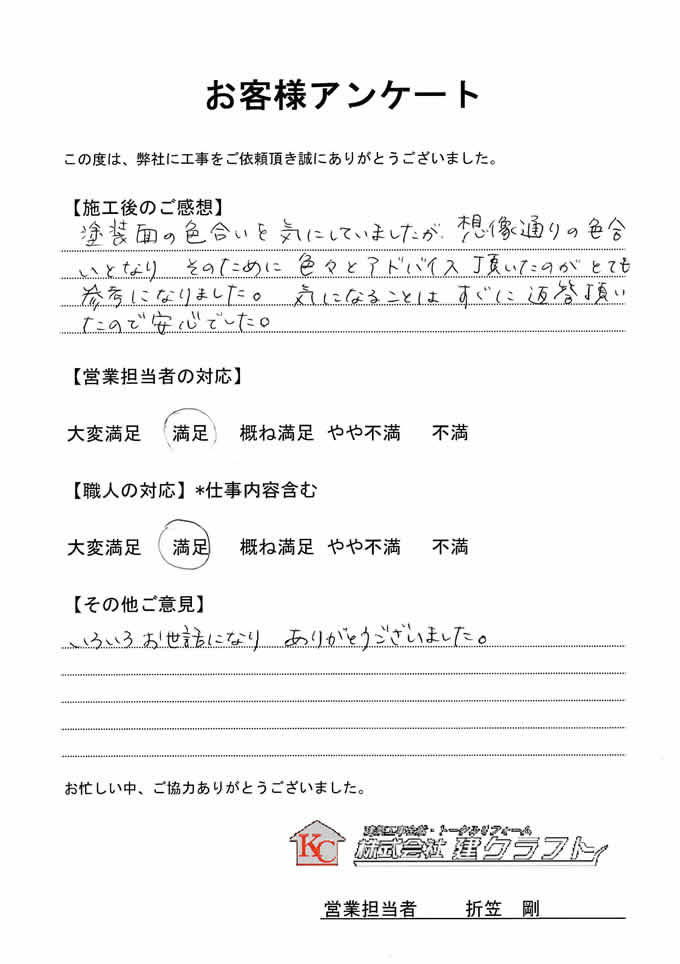 お客様アンケート
この度は、弊社に工事をご依頼頂き誠にありがとうございました。
【施工後のご感想】
塗装面の色合いを気にしていましたが、想像通りの色合
いとなり そのために色々とアドバイス頂いたのがとても
参考になりました。 気になることはすぐに返答頂い
たので安心でした。
【営業担当者の対応】
大変満足 満足 概ね満足 やや不満 不満
【職人の対応】*仕事内容含む
大変満足 満足 概ね満足 やや不満 不満
【その他ご意見】
いろいろお世話になり ありがとうございました。
お忙しい中、ご協力ありがとうございました。
KC
建築工事全般・トータルリフォーム
株式会社 建クラフト
営業担当者 折笠 剛